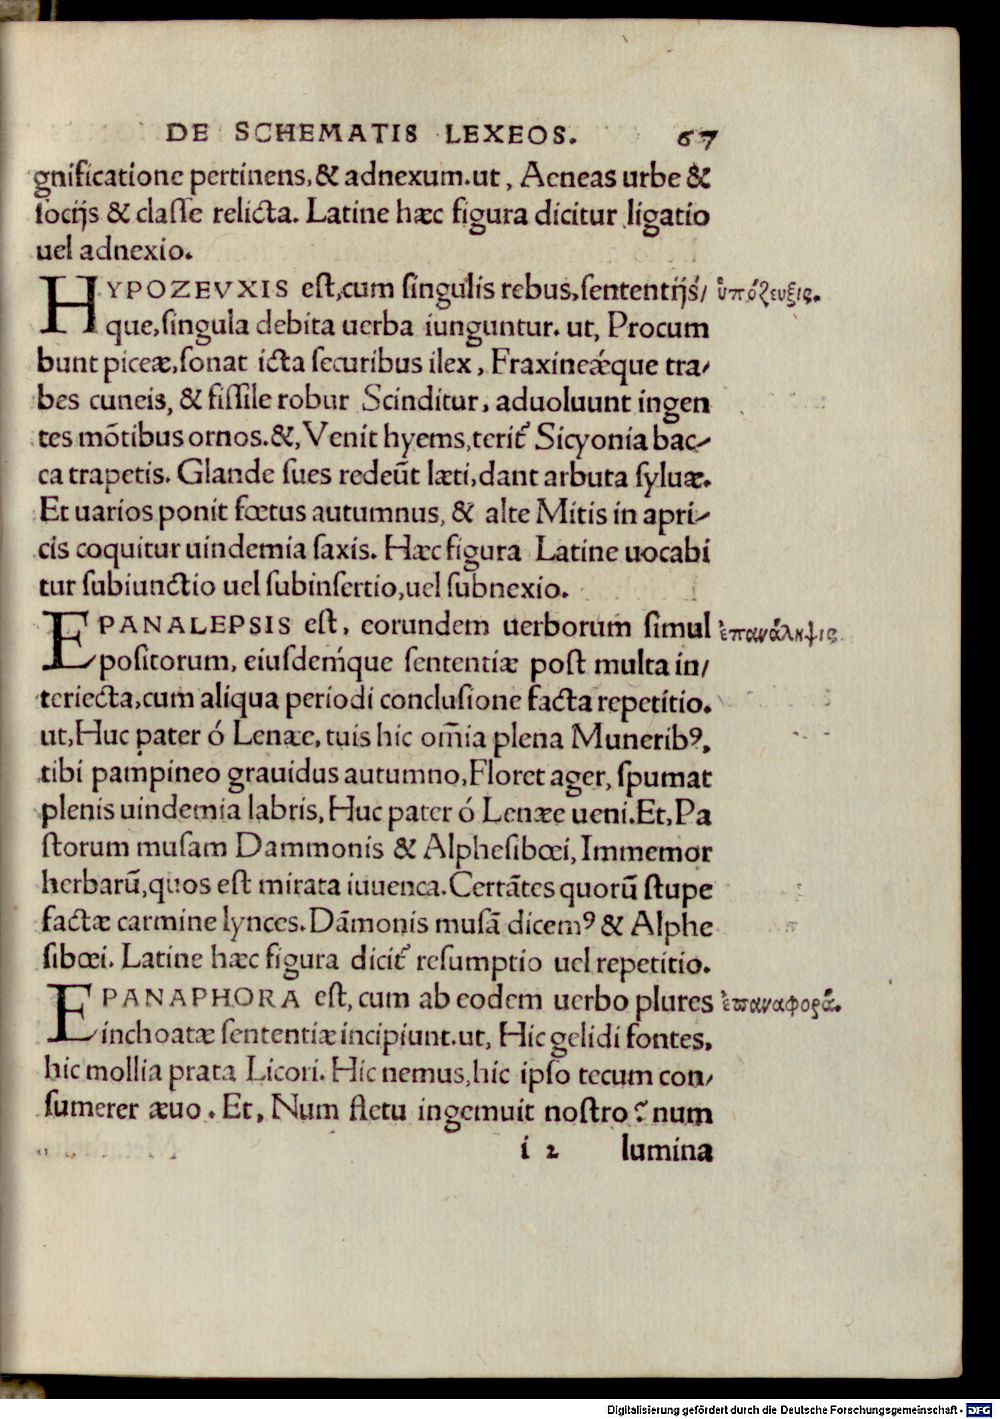 DE SCHEMATIS LEXEOS. 67
gnificatione pertinens, & adnexum. ut, Aeneas urbe &
ſocijs & claſſe relicta. Latine hæc figura dicitur ligatio
uel adnexio.
HYPOZEVXIS eſt, cum ſingulis rebus, ſententijs/ ὑπόζευξις.
que, ſingula debita uerba iunguntur. ut, Procum
bunt piceæ, ſonat icta ſecuribus ilex, Fraxineæque tra/
bes cuneis, & fiſſile robur Scinditur, aduoluunt ingen
tes mōtibus ornos. &, Venit hyems, terit᷑ Sicyonia bac/
ca trapetis. Glande ſues redeūt læti, dant arbuta ſyluæ.
Et uarios ponit fœtus autumnus, & alte Mitis in apri/
cis coquitur uindemia ſaxis. Hæc figura Latine uocabi
tur ſubiunctio uel ſubinſertio, uel ſubnexio.
EPANALEPSIS eſt, eorundem uerborum ſimul ἐπανάληψις
poſitorum, eiuſdeḿque ſententiæ poſt multa in/
teriecta, cum aliqua periodi concluſione facta repetitio.
ut, Huc pater ó Lenæe, tuis hic om̄ia plena Munerib⁹,
tibi pampineo grauidus autumno, Floret ager, ſpumat
plenis uindemia labris, Huc pater ó Lenæe ueni. Et, Pa
ſtorum muſam Dammonis & Alpheſibœi, Immemor
herbarū, quos eſt mirata iuuenca. Certātes quorū ſtupe
factæ carmine lynces. Dāmonis muſā dicem⁹ & Alphe
ſibœi. Latine hæc figura dicit᷑ reſumptio uel repetitio.
EPANAPHORA eſt, cum ab eodem uerbo plures ἐπαναφορά.
inchoatæ ſententiæ incipiunt. ut, Hic gelidi fontes,
hic mollia prata Licori. Hic nemus, hic ipſo tecum con/
ſumerer æuo. Et, Num fletu ingemuit noſtro? num
i 2 lumina
Digitalisierung gefördert durch die Deutsche Forschungsgemeinschaft - DFG